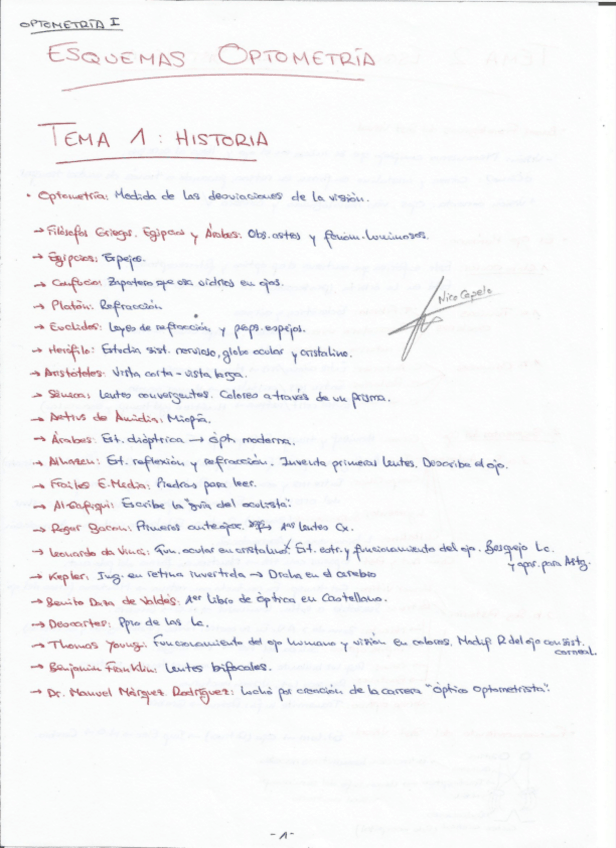 OPTOMETRÍA I
ESQUEMAS OPTOMETRÍA
TEMA 1: HISTORIA
• Optometría: Medida de las desviaciones de la visión.
→ Filósofos Griegos, Egipcios y Árabes: Obs. astros y fenóm. luminosos.
→ Egipcios: Espejos.
→ Confucio: Zapatero que usa vidrios en ojos.
→ Platón: Refracción.
→ Euclides: Leyes de refracción y espejos.
Nico Capelo
→ Herófilo: Estudia sist. nervioso, globe ocular y cristalino.
→ Aristóteles: Vista corta - vista larga.
→ Séneca: Lentes convergentes. Colores a través de un prisma.
→ Aetius de Amidia: Miopía.
→ Árabes: Est. dióptrica → ópt. moderna.
→ Alhazen: Est. reflexión y refracción. Inventa primeras lentes. Describe el ojo.
→ Frailes E. Media: Piedras para leer.
→ Al-Gafiqui: Escribe la "guía del oculista".
→ Roger Bacon: Primeros anteojos. 1as lentes Cx.
→ Leonardo da Vinci: ocular en cristalino. Est. estr. y funcionamiento del ojo. Bosquejo Lc.
y apar. para Astg.
→ Kepler: Img. en retina invertida → Dcha en el cerebro
→ Benito Daza de Valdés: 1er Libro de óptica en Castellano.
→ Descartes: Ppio de las Lc.
→ Thomas Young: Funcionamiento del ojo humano y visión en colores. Modif R del ojo con sist.
corneal.
→ Benjamin Franklin: Lentes bifocales.
→ Dr. Manuel Márquez Rodríguez: Luchó por creación de la carrera "Óptico Optometrista".
-1-